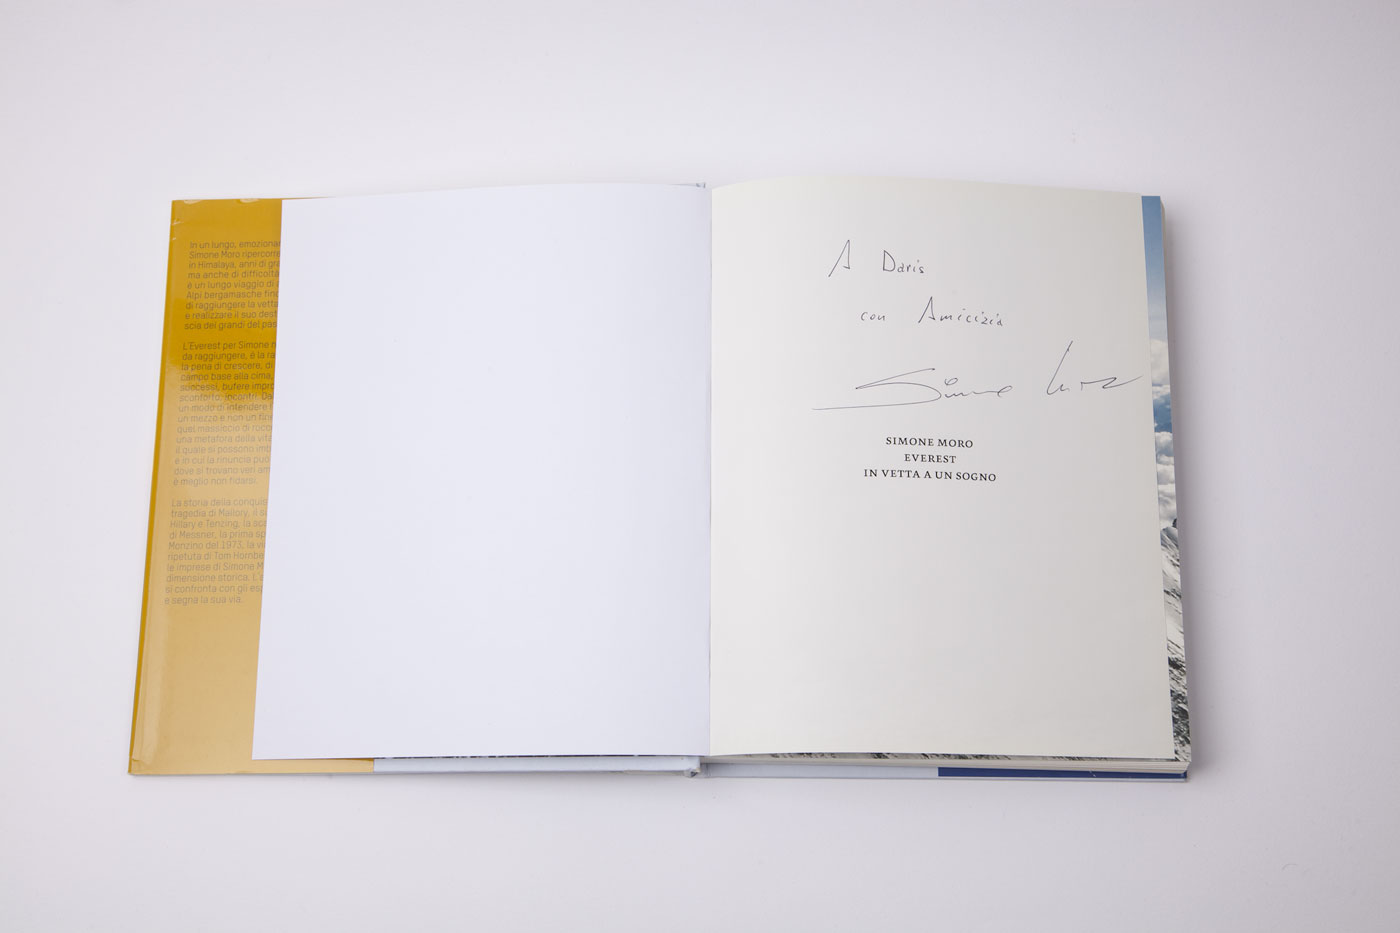 In un lungo, emozionan
Simone Moro ripercorre
in Himalaya, anni di gra
ma anche di difficoltà
e un lungo viaggio di
Alpi bergamasche fino
di raggiungere la vetta
e realizzare il suo dest
scia dei grandi del pas
L'Everest per Simone n
da raggiungere, è la ra
la pena di crescere, di
campo base alla cima,
successi, bufere impro
sconforto, incontri. Da
un modo di intendere
un mezzo e non un fine
quel massiccio di rocc
una metafora della vita
il quale si possono imb
e in cui la rinuncia può
dove si trovano veri am
è meglio non fidarsi.
La storia della conquis
tragedia di Mallory, il s
Hillary e Tenzing, la sc
di Messner, la prima sp
Monzino del 1973, la vi
ripetuta di Tom Hornbe
le imprese di Simone M
dimensione storica. L'a
si confronta con gli esp
e segna la sua via.
A Daris
con Amicizia
Simone Moro
SIMONE MORO
EVEREST
IN VETTA A UN SOGNO